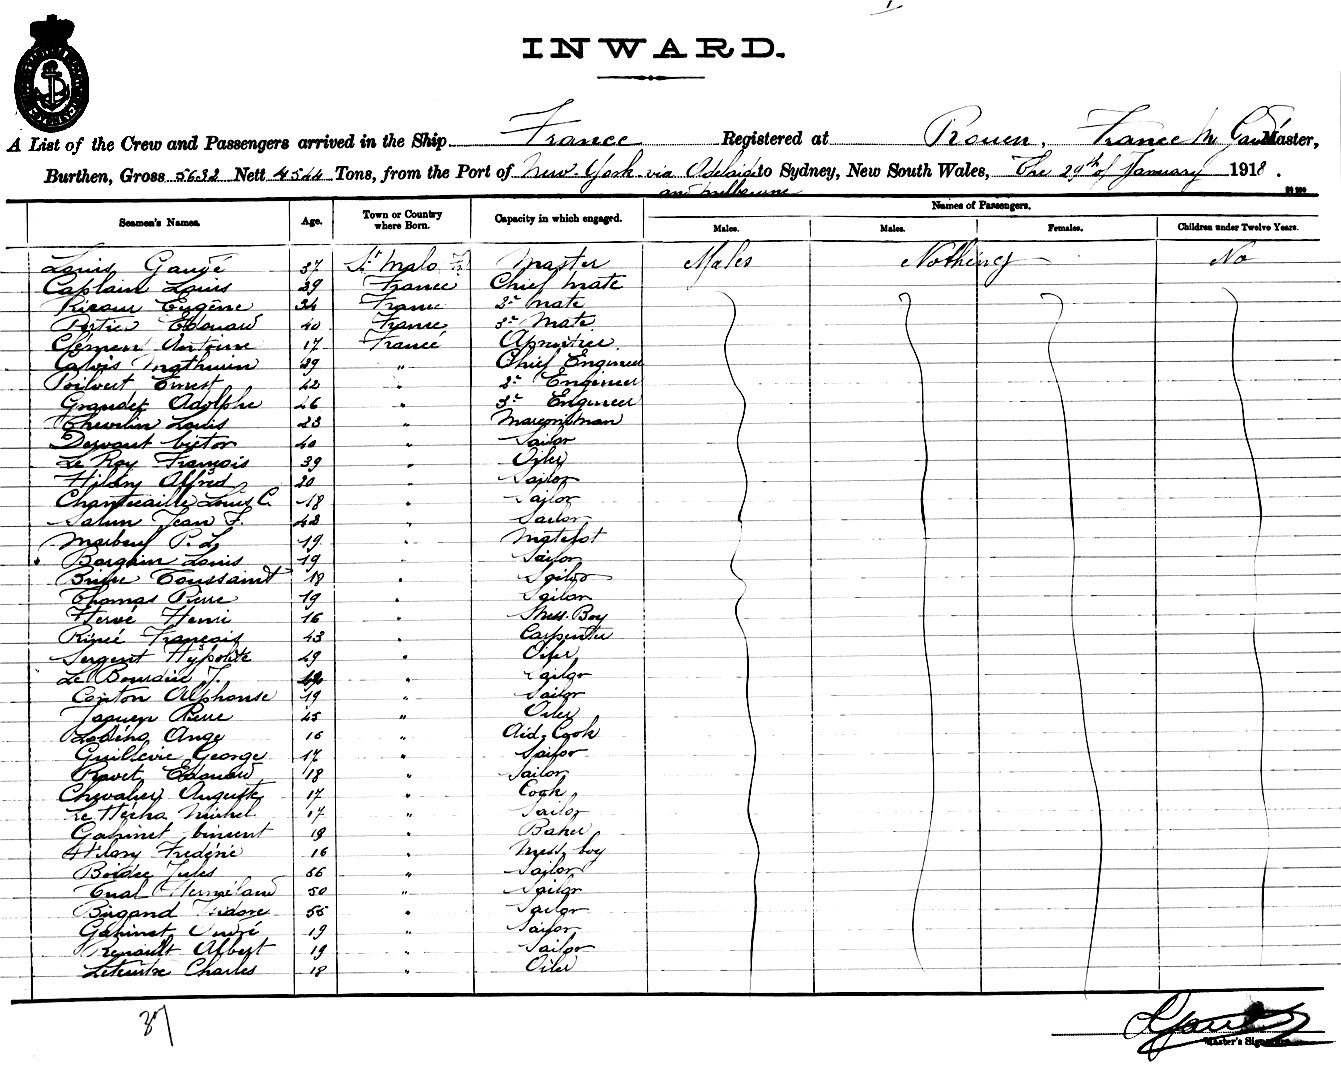 INWARD.
A List of the Crew and Passengers arrived in the Ship France Registered at Rouen, France M Master,
Burthen, Gross 5632 Nett 4544 Tons, from the Port of New-York via Adelaide to Sydney, New South Wales, The 29th of January 1918.
and Melbourne
Names of Passengers.
Seamen's Names. Age. Town or Country where Born. Capacity in which engaged. Males. Males. Females. Children under Twelve Years.
Louis Gaugé 37 St Malo Fr Master Males Nothing No
Captain Louis 39 France Chief Mate
Eugène 34 France 2d Mate
Edouard 40 France 3d Mate
Antoine 17 France
Mathurin 39 " Chief Engineer
Poilvert Ernest 42 " 2d Engineer
Adolphe 46 " 3d Engineer
Louis 23 " Marconi man
40 " Sailor
Le Roy François 39 " Oiler
Hilary Alfred 20 " Sailor
Chantecaille Louis C. 18 " Sailor
Salun Jean F. 42 " Sailor
P. L. 19 "
Louis 19 " Sailor
Toussaint 18 " Sailor
Thomas Pierre 19 " Sailor
Hervé Henri 16 " Mess. Boy
François 43 " Carpenter
Sergent Hypolite 29 " Oiler
Le J. " Sailor
Alphonse 19 " Sailor
Pierre 45 " Oiler
Ange 16 " Aid. Cook
Guillevic George 17 " Sailor
Ravet Edouard 18 " Sailor
Chevalier Auguste 17 " Cook
Le Michel 17 " Sailor
Gabinet Vincent 19 " Baker
Hilary Frédéric 16 " Mess. boy
Jules 56 " Sailor
Tual 50 " Sailor
Isidore 55 " Sailor
Gabinet 19 " Sailor
Renault Albert 19 " Sailor
Charles 18 " Oiler
37
Master's Signature.